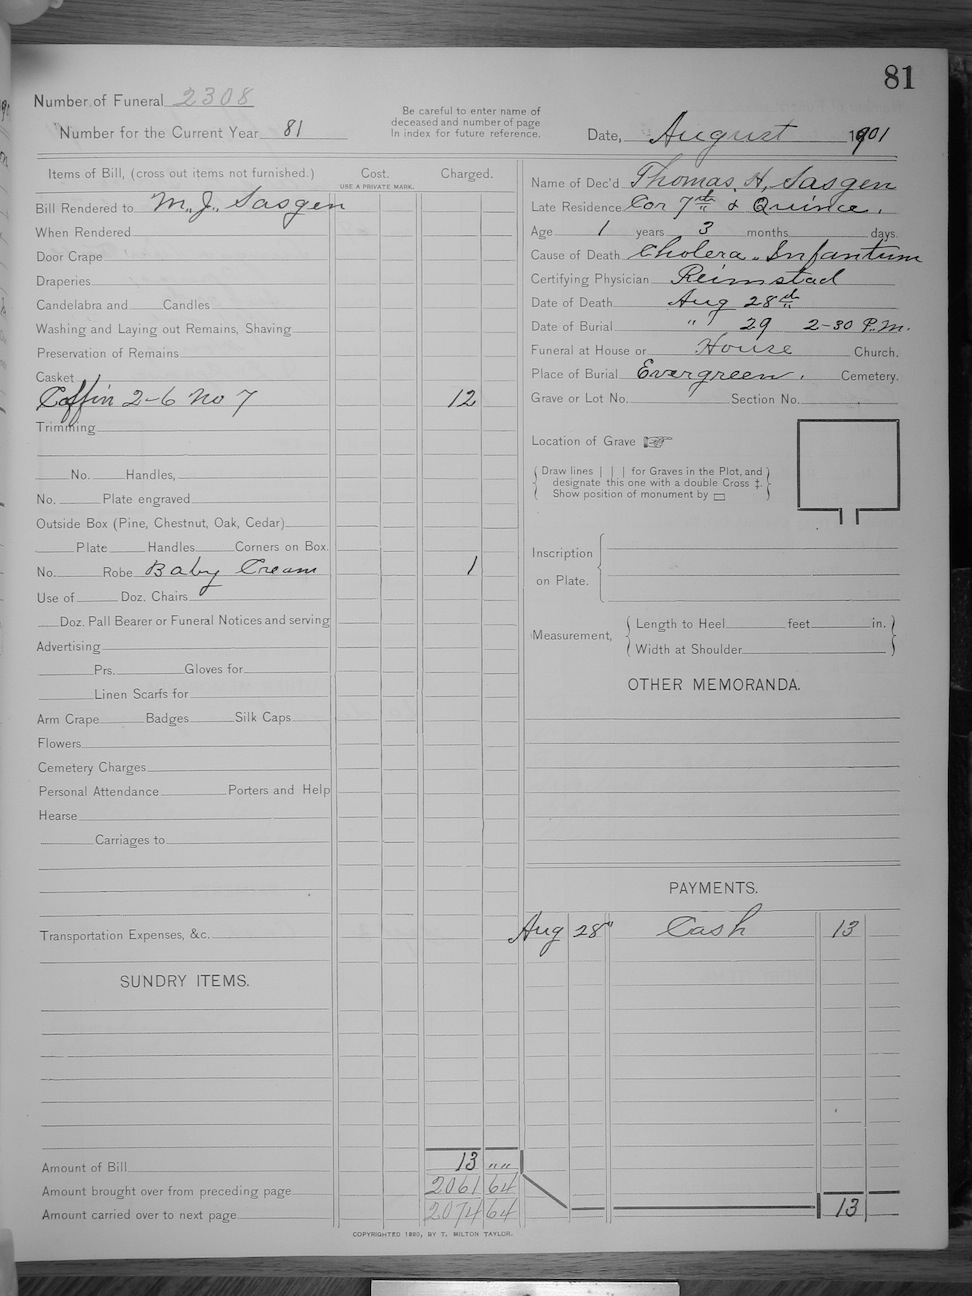 81
Number of Funeral 2308
Number for the Current Year 81
Be careful to enter name of
deceased and number of page
In index for future reference.
Date, August 1901
Items of Bill, (cross out items not furnished.) Cost. Charged.
USE A PRIVATE MARK.
Bill Rendered to M.J. Sasgen
When Rendered
Door Crape
Draperies
Candelabra and Candles
Washing and Laying out Remains, Shaving
Preservation of Remains
Casket
Coffin 2-6 No 7 12
Trimming
No. Handles,
No. Plate engraved
Outside Box (Pine, Chestnut, Oak, Cedar)
Plate Handles Corners on Box.
No. Robe Baby Cream 1
Use of Doz. Chairs
Doz. Pall Bearer or Funeral Notices and serving
Advertising
Prs. Gloves for
Linen Scarfs for
Arm Crape Badges Silk Caps
Flowers
Cemetery Charges
Personal Attendance Porters and Help
Hearse
Carriages to
Transportation Expenses, &c.
SUNDRY ITEMS.
Amount of Bill 13 " "
Amount brought over from preceding page 2061 64
Amount carried over to next page 2074 64
Name of Dec'd Thomas. H. Sasgen
Late Residence Cor 7th & Quince.
Age 1 years 3 months days.
Cause of Death Cholera Infantum
Certifying Physician Reimstad
Date of Death Aug 28th
Date of Burial " 29 2-30 P.M.
Funeral at House or House Church.
Place of Burial Evergreen. Cemetery.
Grave or Lot No. Section No.
Location of Grave ☞
Draw lines | | | for Graves in the Plot, and
designate this one with a double Cross ‡.
Show position of monument by ▭
Inscription
on Plate.
Measurement,
Length to Heel feet in.
Width at Shoulder
OTHER MEMORANDA.
PAYMENTS.
Aug 28" Cash 13
13
COPYRIGHTED 1890, BY T. MILTON TAYLOR.